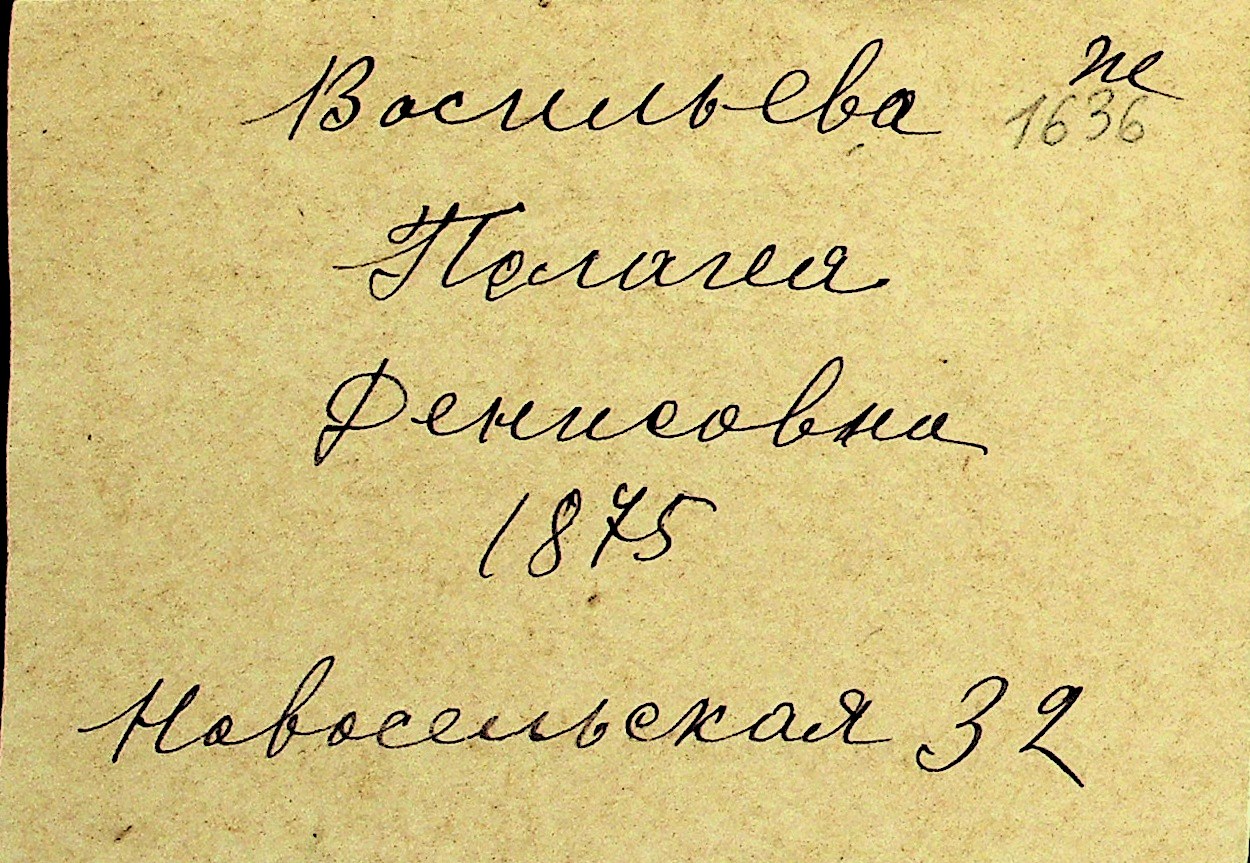 Васильева
не
1636
Пелагея
Денисовна
1875
Новосельская 32